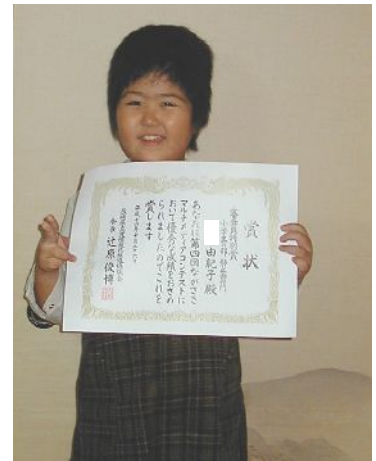 賞状
審査員特別賞
由紀子殿
あなたは第四回ながさき
マルチメディアコンテストに
おいて優秀な成績をおさめ
られましたのでこれを
賞します
会長 辻原俊博